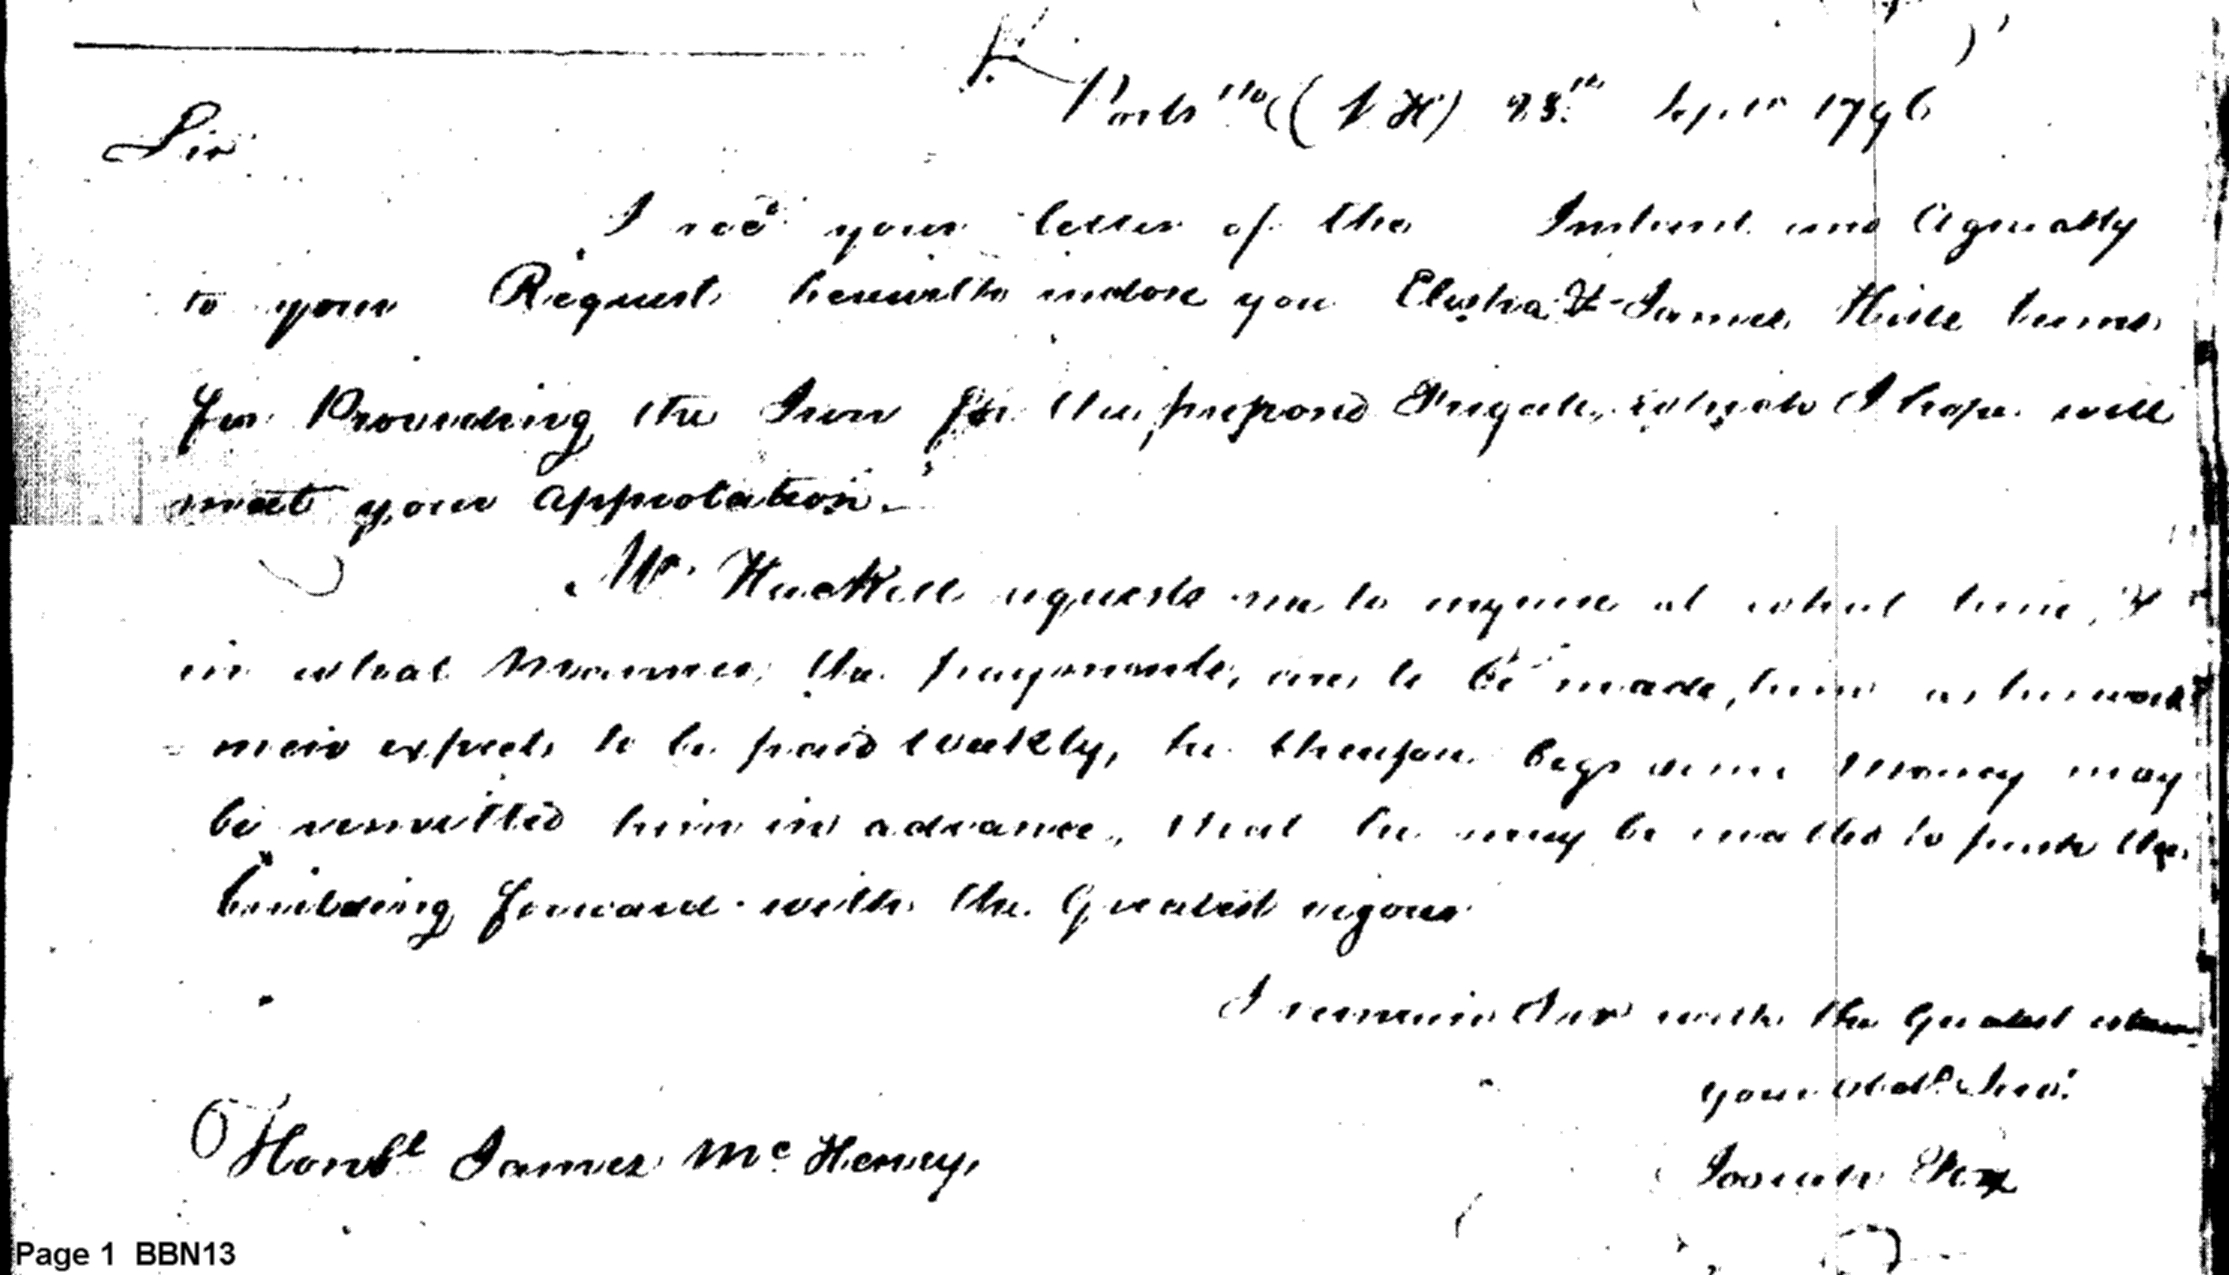 Ports mo (N H) 28th Septr 1796
Sir
I recd your letter of the Instant and Agreably
to your Request herewith inclose you Elisha & James Hills terms
for Providing the Iron for the proposed Frigate, which I hope will
meet your approbation.
Mr. Hackett requests me to inquire at what time, &
in what Manner the payments, are to be made, him as his work
= men expects to be paid Weekly, he therefore begs some Money may
be remitted him in advance, that he may be enabled to push the
building forward with the Greatest vigour
I remain Sir with the Greatest esteem
your Obdt. Serv.
Honble James McHenry,
Josiah Fox
Page 1 BBN13